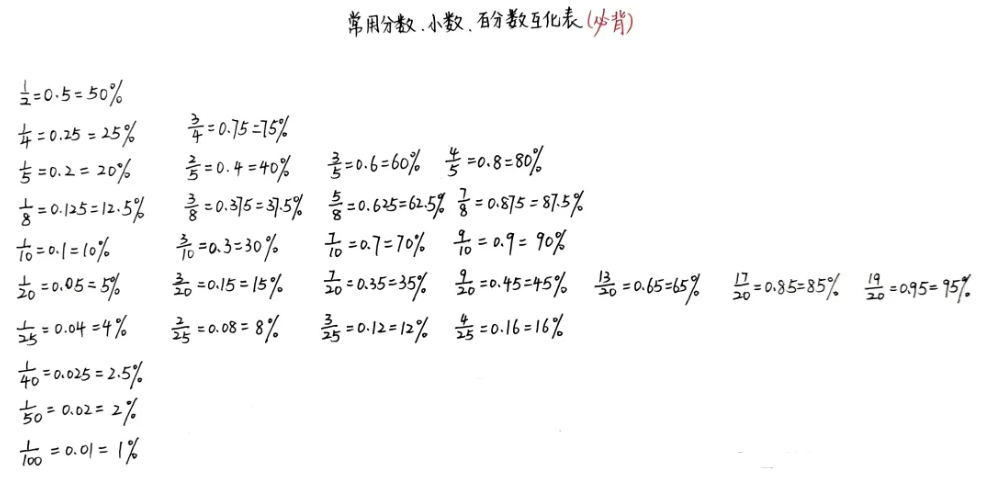 常用分数、小数、百分数互化表(必背)
1/2=0.5=50%
1/4=0.25=25% 3/4=0.75=75%
1/5=0.2=20% 2/5=0.4=40% 3/5=0.6=60% 4/5=0.8=80%
1/8=0.125=12.5% 3/8=0.375=37.5% 5/8=0.625=62.5% 7/8=0.875=87.5%
1/10=0.1=10% 3/10=0.3=30% 7/10=0.7=70% 9/10=0.9=90%
1/20=0.05=5% 3/20=0.15=15% 7/20=0.35=35% 9/20=0.45=45% 13/20=0.65=65% 17/20=0.85=85% 19/20=0.95=95%
1/25=0.04=4% 2/25=0.08=8% 3/25=0.12=12% 4/25=0.16=16%
1/40=0.025=2.5%
1/50=0.02=2%
1/100=0.01=1%